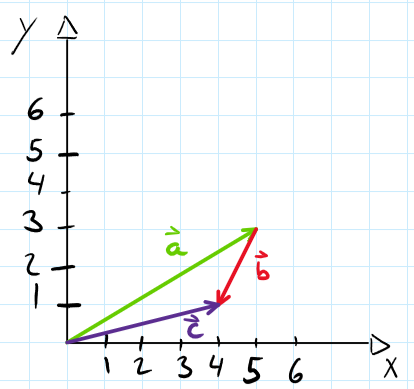 y
6
5
4
3
2
1
a⃗
b⃗
c⃗
1 2 3 4 5 6
x